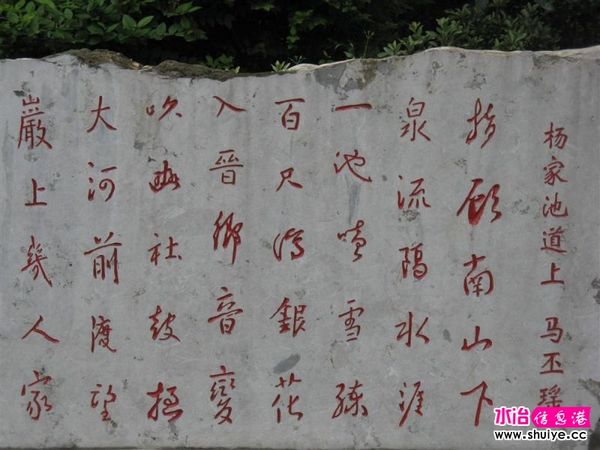 杨家池道上 马丕瑶
指顾南山下
泉流隔水涯
一池喷雪练
百尺泻銀花
入晉鄉音變
吹豳社鼓挝
大河前渡望
巖上幾人家
水冶信息港
www.shuiye.cc